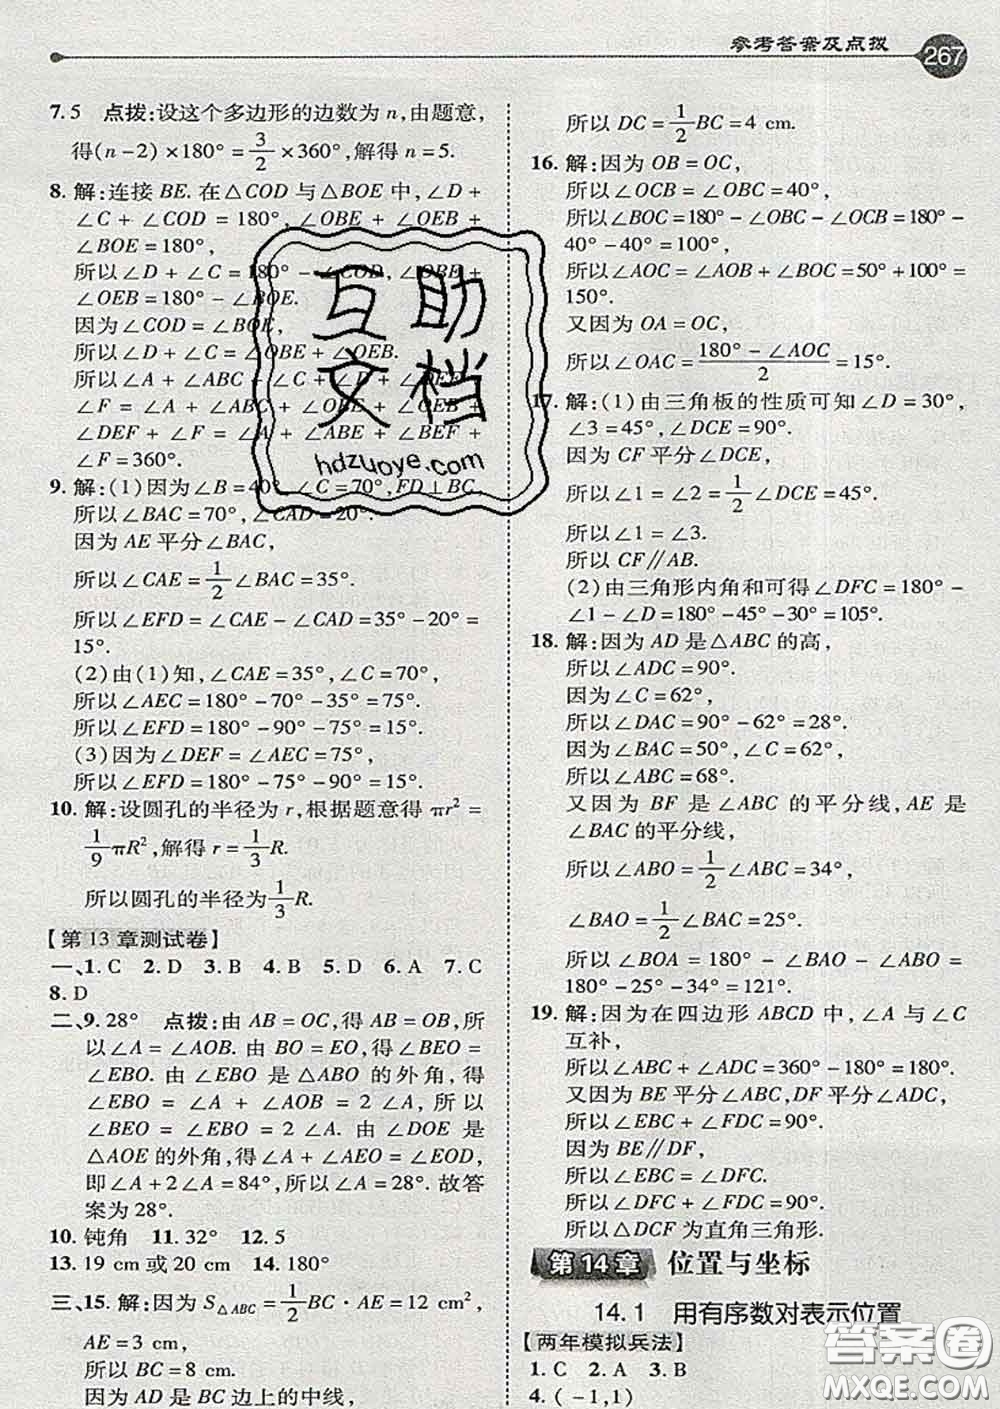 参考答案及点拨 267
7.5 点拨:设这个多边形的边数为 n,由题意,
得(n-2)×180°=3/2×360°,解得 n=5.
8. 解:连接 BE. 在△COD 与△BOE 中,∠D+
∠C+∠COD=180°,∠OBE+∠OEB+
∠BOE=180°,
所以∠D+∠C=180°-∠COD,∠OBE+
∠OEB=180°-∠BOE.
因为∠COD=∠BOE,
所以∠D+∠C=∠OBE+∠OEB.
所以∠A+∠ABC+∠C+∠D+∠DEF+
∠F=∠A+∠ABC+∠OBE+∠OEB+
∠DEF+∠F=∠A+∠ABE+∠BEF+
∠F=360°.
9. 解:(1)因为∠B=40°,∠C=70°,FD⊥BC,
所以∠BAC=70°,∠CAD=20°.
因为 AE 平分∠BAC,
所以∠CAE=1/2∠BAC=35°.
所以∠EFD=∠CAE-∠CAD=35°-20°=
15°.
(2)由(1)知,∠CAE=35°,∠C=70°,
所以∠AEC=180°-70°-35°=75°.
所以∠EFD=180°-90°-75°=15°.
(3)因为∠DEF=∠AEC=75°,
所以∠EFD=180°-75°-90°=15°.
10. 解:设圆孔的半径为 r,根据题意得 πr²=
1/9πR²,解得 r=1/3R.
所以圆孔的半径为1/3R.
【第 13 章测试卷】
一、1. C 2. D 3. B 4. B 5. D 6. A 7. C
8. D
二、9. 28° 点拨:由 AB=OC,得 AB=OB,所
以∠A=∠AOB. 由 BO=EO,得∠BEO=
∠EBO. 由∠EBO 是△ABO 的外角,得
∠EBO=∠A+∠AOB=2∠A,所以
∠BEO=∠EBO=2∠A. 由∠DOE 是
△AOE 的外角,得∠A+∠AEO=∠EOD,
即∠A+2∠A=84°,所以∠A=28°. 故答
案为 28°.
10. 钝角 11. 32° 12. 5
13. 19 cm 或 20 cm 14. 180°
三、15. 解:因为 S△ABC=1/2BC·AE=12 cm²,
AE=3 cm,
所以 BC=8 cm.
因为 AD 是 BC 边上的中线,
所以 DC=1/2BC=4 cm.
16. 解:因为 OB=OC,
所以∠OCB=∠OBC=40°,
所以∠BOC=180°-∠OBC-∠OCB=180°-
40°-40°=100°,
所以∠AOC=∠AOB+∠BOC=50°+100°=
150°.
又因为 OA=OC,
所以∠OAC=(180°-∠AOC)/2=15°.
17. 解:(1)由三角板的性质可知∠D=30°,
∠3=45°,∠DCE=90°.
因为 CF 平分∠DCE,
所以∠1=∠2=1/2∠DCE=45°.
所以∠1=∠3.
所以 CF∥AB.
(2)由三角形内角和可得∠DFC=180°-
∠1-∠D=180°-45°-30°=105°.
18. 解:因为 AD 是△ABC 的高,
所以∠ADC=90°.
因为∠C=62°,
所以∠DAC=90°-62°=28°.
因为∠BAC=50°,∠C=62°,
所以∠ABC=68°.
又因为 BF 是∠ABC 的平分线,AE 是
∠BAC 的平分线,
所以∠ABO=1/2∠ABC=34°,
∠BAO=1/2∠BAC=25°.
所以∠BOA=180°-∠BAO-∠ABO=
180°-25°-34°=121°.
19. 解:因为在四边形 ABCD 中,∠A 与∠C
互补,
所以∠ABC+∠ADC=360°-180°=180°.
又因为 BE 平分∠ABC,DF 平分∠ADC,
所以∠EBC+∠FDC=90°.
因为 BE∥DF,
所以∠EBC=∠DFC.
所以∠DFC+∠FDC=90°.
所以△DCF 为直角三角形.
第 14 章 位置与坐标
14.1 用有序数对表示位置
【两年模拟兵法】
1. C 2. A 3. B
4. (-1,1)
互助
文档
hdzuoye.com
答案圈
MXQE.COM